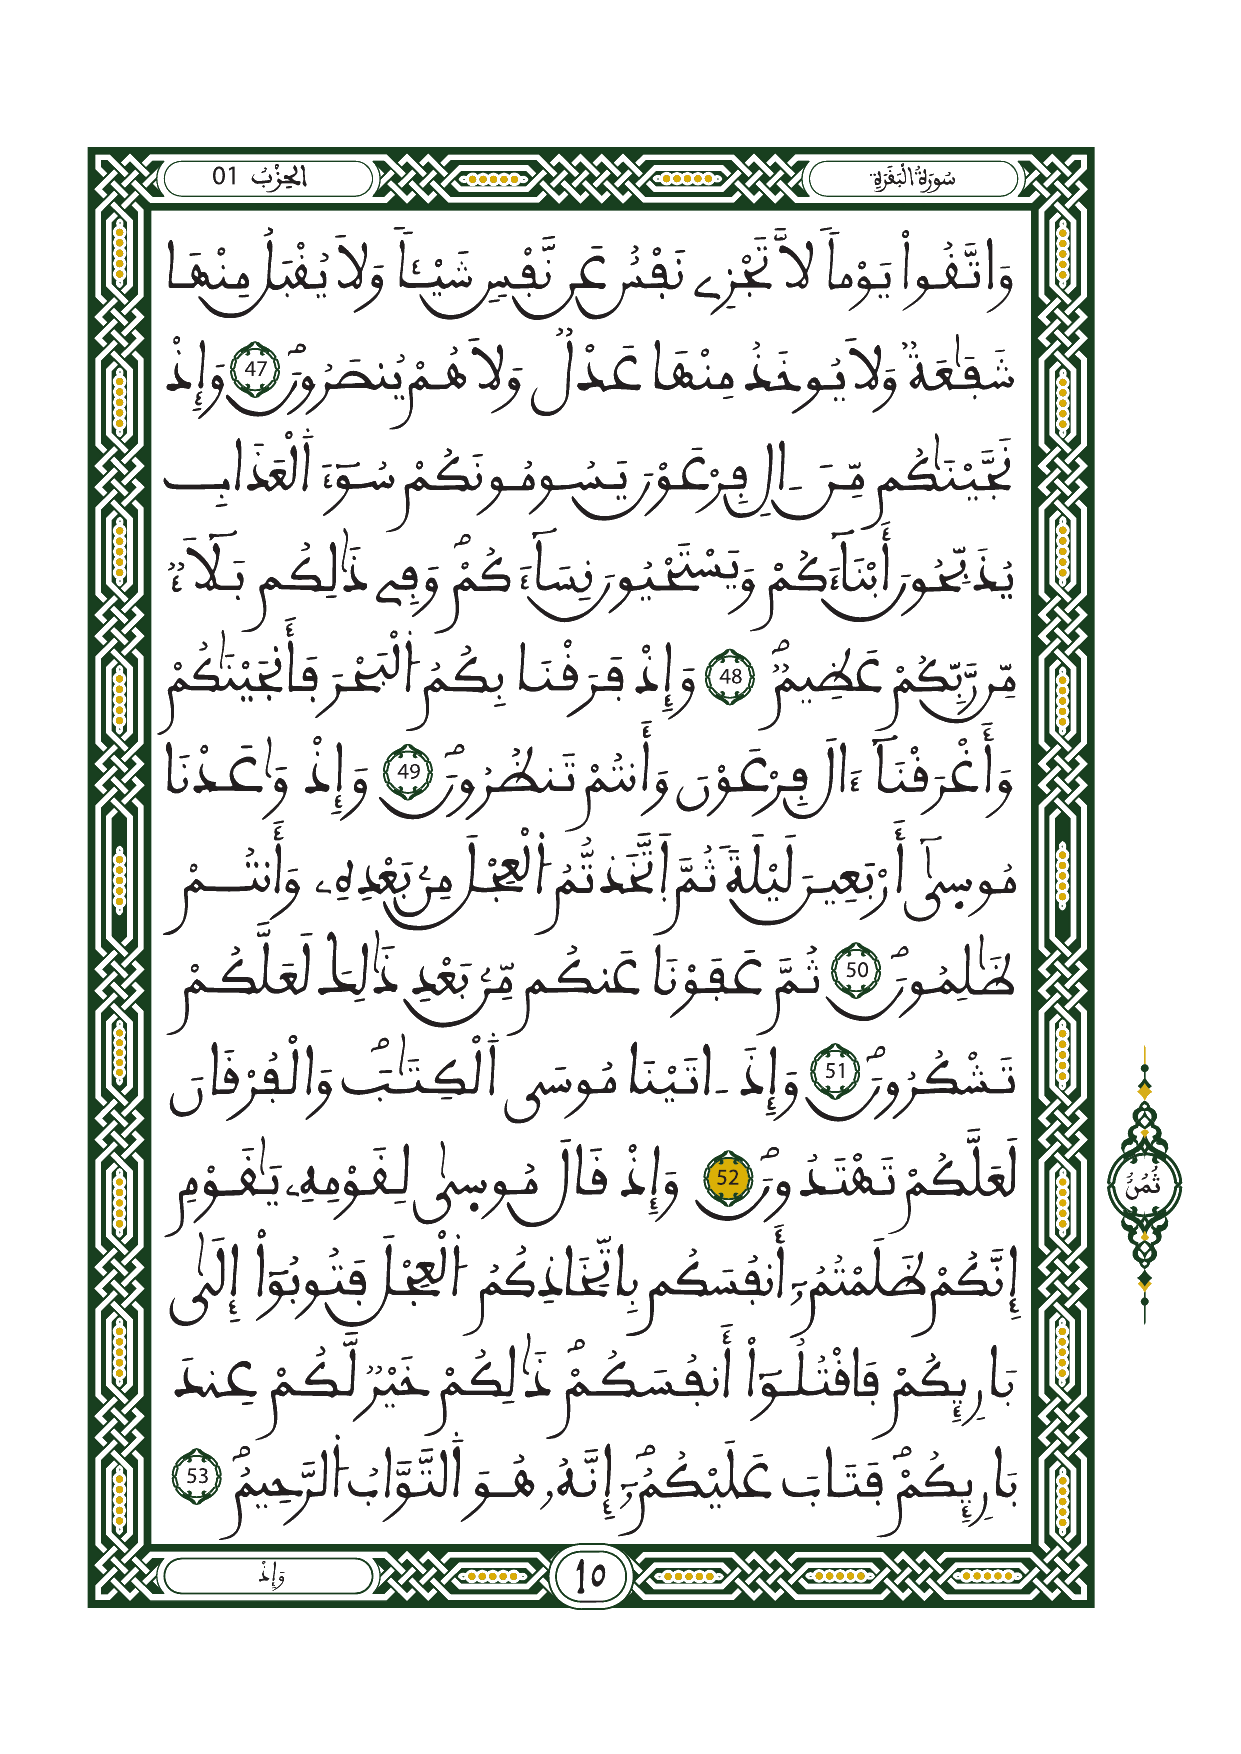 سُورَةُ الْبَقَرَةِ
الحِزْبُ 01
وَاتَّقُواْ يَوْماٗ لَّا تَجْزِے نَفْسٌ عَن نَّفْسٖ شَيْـٔاٗ وَلَا يُقْبَلُ مِنْهَا
شَفَٰعَةٞ وَلَا يُوخَذُ مِنْهَا عَدْلٞ وَلَا هُمْ يُنصَرُونَۖ 47 وَإِذْ
نَجَّيْنَٰكُم مِّنَ ـالِ فِرْعَوْنَ يَسُومُونَكُمْ سُوٓءَ اَ۬لْعَذَابِ
يُذَبِّحُونَ أَبْنَآءَكُمْ وَيَسْتَحْيُونَ نِسَآءَكُمْۖ وَفِے ذَٰلِكُم بَلَآءٞ
مِّن رَّبِّكُمْ عَظِيمٞۖ 48 وَإِذْ فَرَقْنَا بِكُمُ اُ۬لْبَحْرَ فَأَنجَيْنَٰكُمْ
وَأَغْرَقْنَآ ءَالَ فِرْعَوْنَ وَأَنتُمْ تَنظُرُونَۖ 49 وَإِذْ وَٰعَدْنَا
مُوسۭيٰٓ أَرْبَعِينَ لَيْلَةٗ ثُمَّ اَ۪تَّخَذتُّمُ اُ۬لْعِجْلَ مِنۢ بَعْدِهِۦ وَأَنتُمْ
ظَٰلِمُونَۖ 50 ثُمَّ عَفَوْنَا عَنكُم مِّنۢ بَعْدِ ذَٰلِكَ لَعَلَّكُمْ
تَشْكُرُونَۖ 51 وَإِذَ ـاتَيْنَا مُوسَي اَ۬لْكِتَٰبَۖ وَالْفُرْقَانَ
لَعَلَّكُمْ تَهْتَدُونَۖ 52 وَإِذْ قَالَ مُوسۭيٰ لِقَوْمِهِۦ يَٰقَوْمِ
ثُمُنُ
إِنَّكُمْ ظَلَمْتُمُۥٓ أَنفُسَكُم بِاتِّخَاذِكُمُ اُ۬لْعِجْلَ فَتُوبُوٓاْ إِلَيٰ
بَارِئِكُمْ فَاقْتُلُوٓاْ أَنفُسَكُمْۖ ذَٰلِكُمْ خَيْرٞ لَّكُمْ عِندَ
بَارِئِكُمْۖ فَتَابَ عَلَيْكُمُۥٓۖ إِنَّهُۥ هُوَ اَ۬لتَّوَّابُ اُ۬لرَّحِيمُۖ 53
10
وَإِذْ